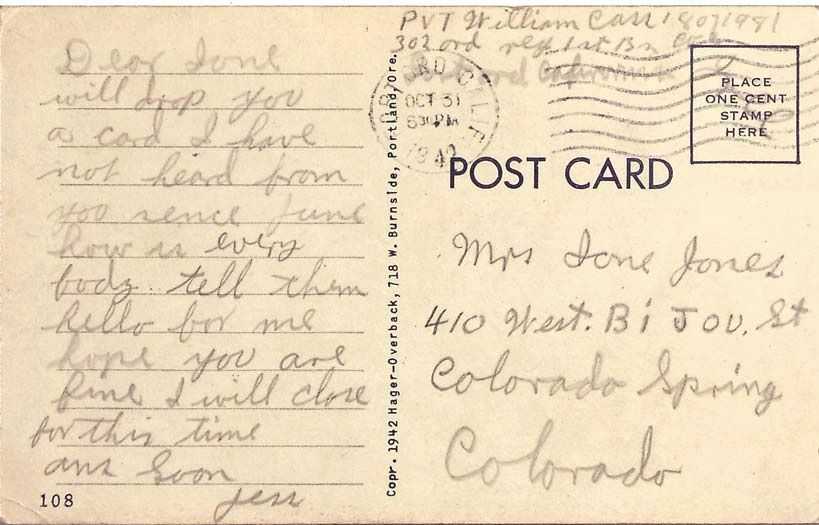 Dear Ione
will drop you
a card I have
not heard from
you sence June
how is every
body. tell them
hello for me
hope you are
fine I will close
for this time
ans Soon
Jess
108
Copr. 1942 Hager-Overback, 718 W. Burnside, Portland, Ore.
PVT William Carr
302 ord reg 1st Bn
CALIF
OCT 31
630 PM
1942
PLACE
ONE CENT
STAMP
HERE
POST CARD
Mrs Ione Jones
410 West. Bi JOU. St
Colorado Spring
Colorado